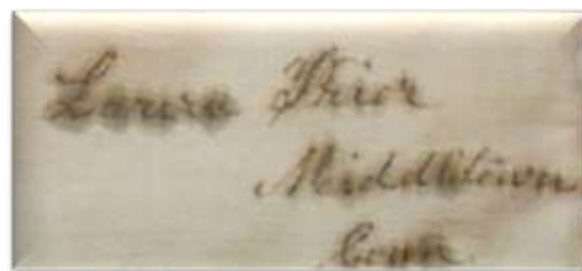 Laura Prior
Middletown
Conn.